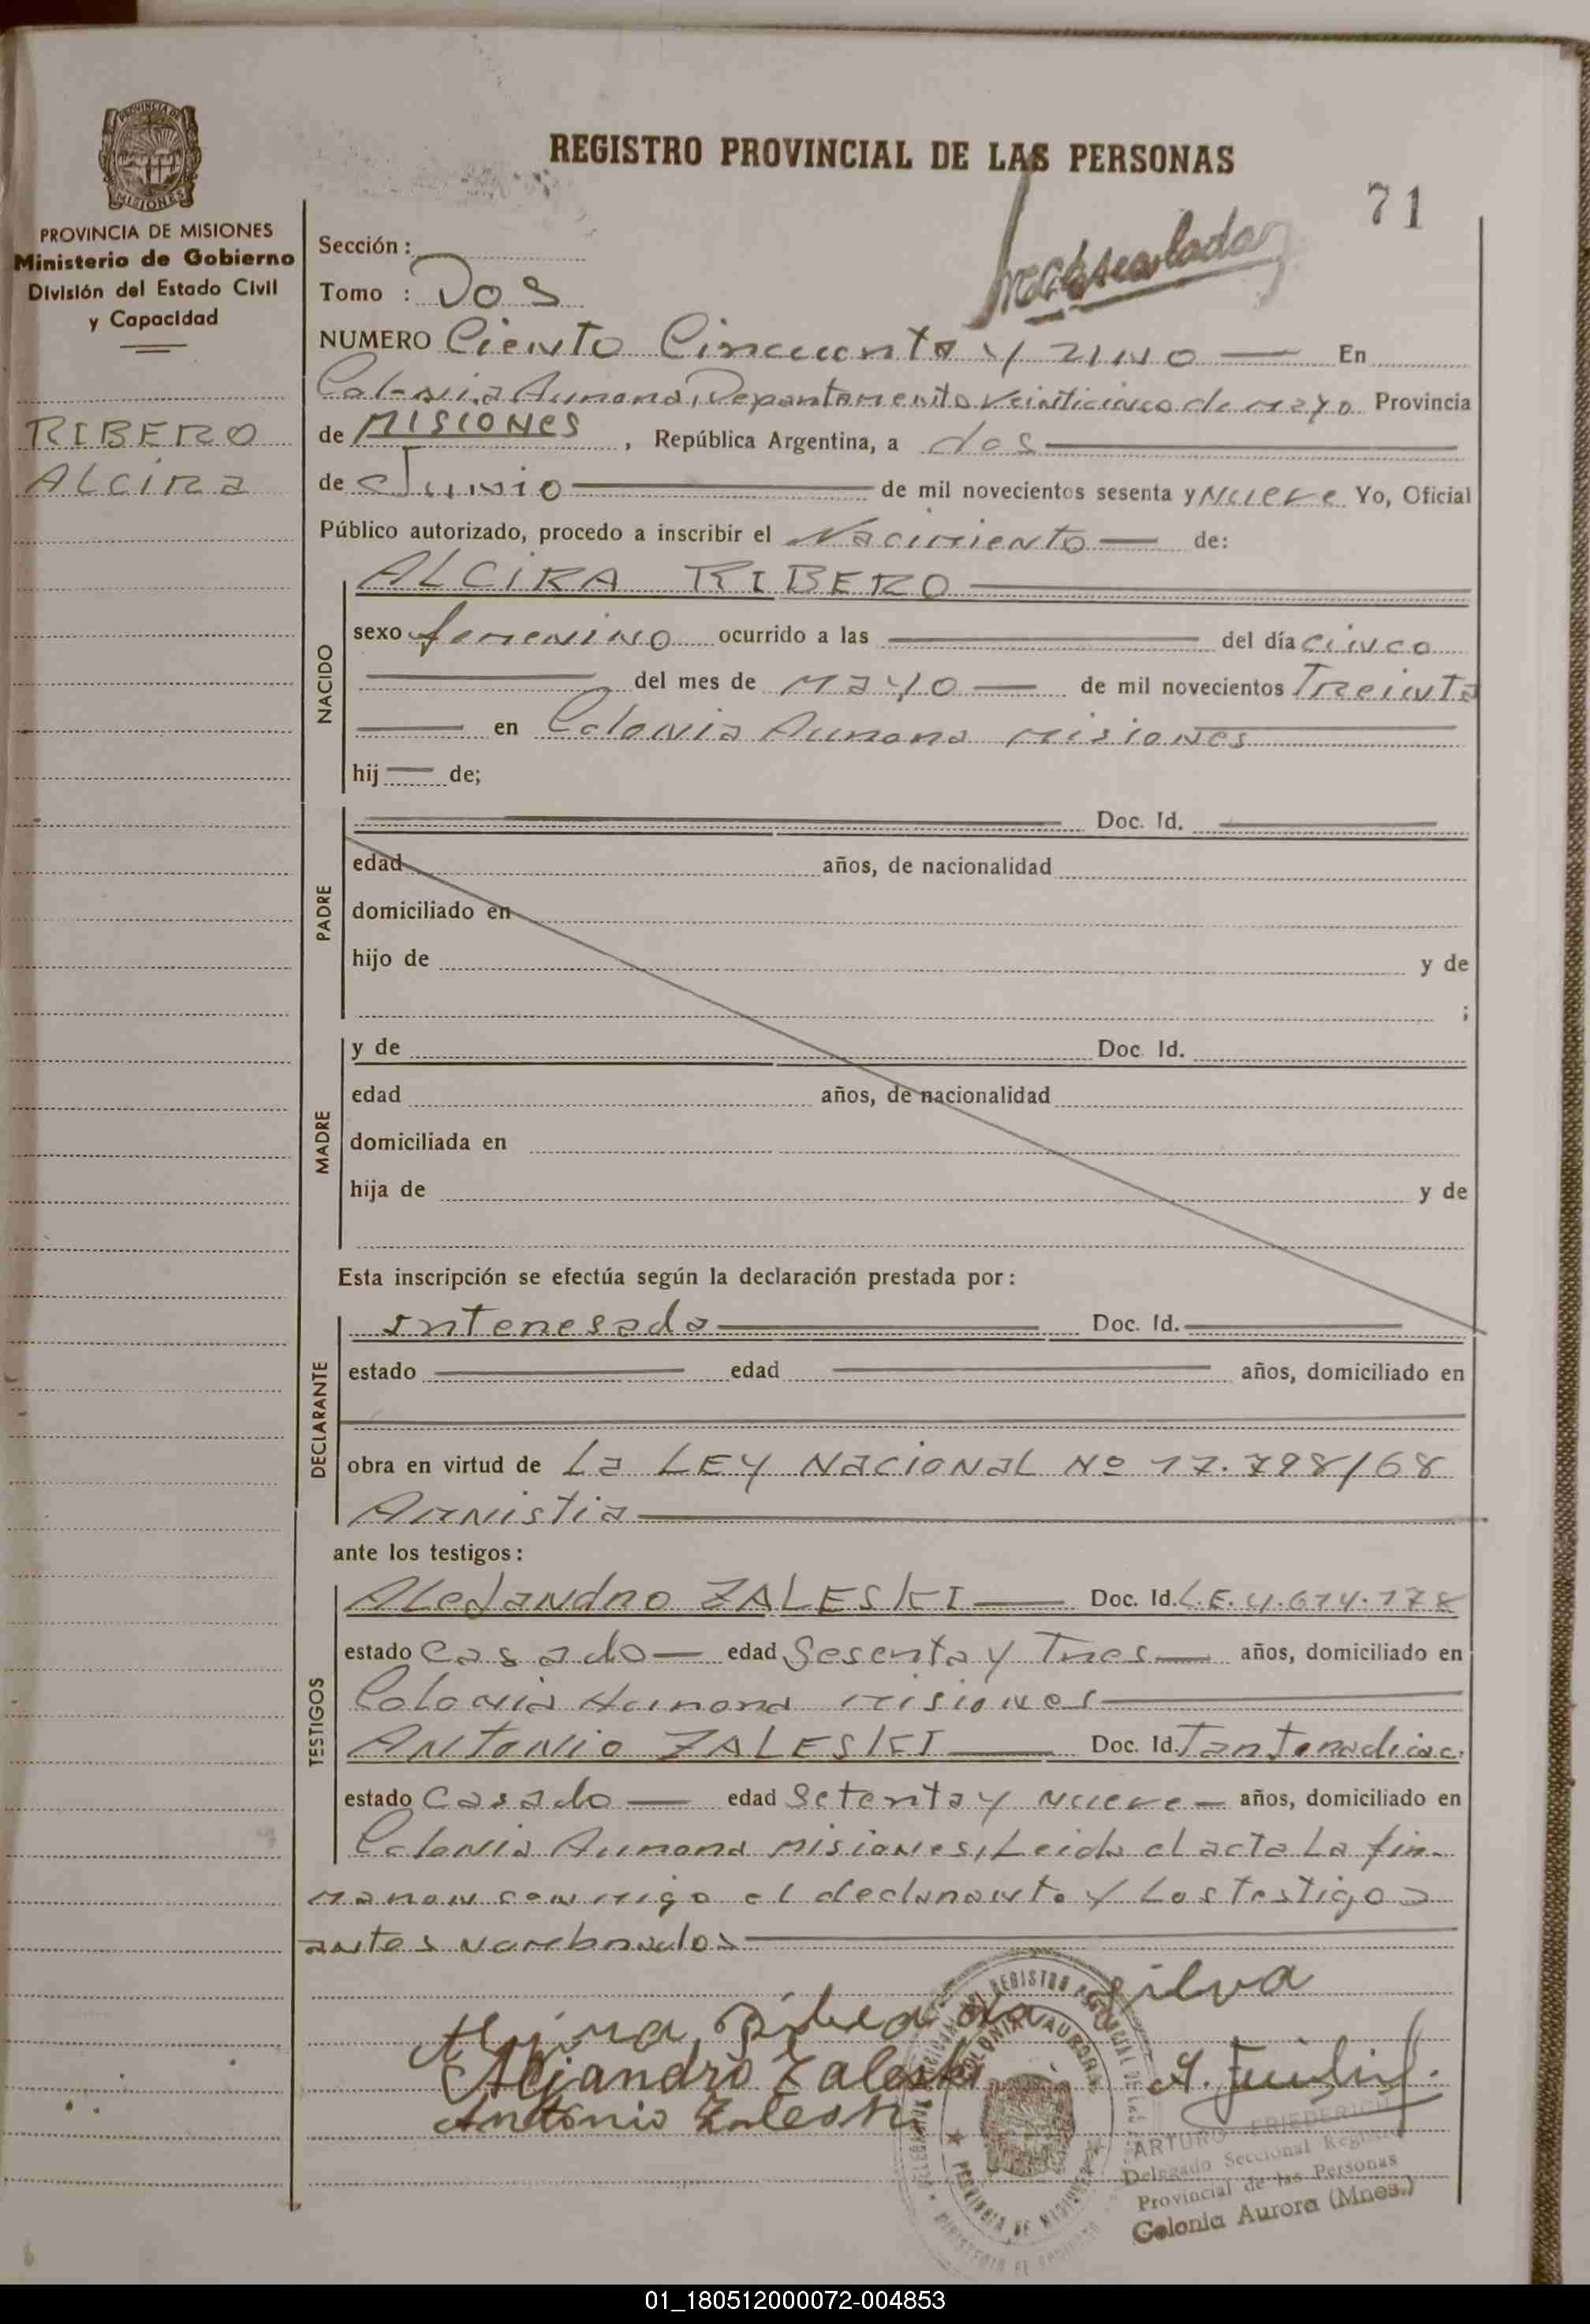 REGISTRO PROVINCIAL DE LAS PERSONAS
71
PROVINCIA DE MISIONES
Ministerio de Gobierno
División del Estado Civil
y Capacidad
RIBERO
ALCIRA
Sección :
Tomo : Dos
NUMERO Ciento Cincuenta y uno En
Colonia Aurora, Departamento Veinticinco de mayo Provincia
de MISIONES , República Argentina, a dos
de Junio de mil novecientos sesenta y Nueve Yo, Oficial
Público autorizado, procedo a inscribir el Nacimiento de:
NACIDO
ALCIRA RIBERO
sexo femenino ocurrido a las del día cinco
del mes de Mayo de mil novecientos Treinta
en Colonia Aurora misiones
hij de;
PADRE
Doc. Id.
edad años, de nacionalidad
domiciliado en
hijo de y de
;
MADRE
y de Doc. Id.
edad años, de nacionalidad
domiciliada en
hija de y de
Esta inscripción se efectúa según la declaración prestada por :
DECLARANTE
interesada Doc. Id.
estado edad años, domiciliado en
obra en virtud de La LEY NACIONAL Nº 17.798/68
Amnistia
ante los testigos :
TESTIGOS
Alejandro ZALESKI Doc. Id. L.E. 4.674.178
estado Casado edad Sesenta y Tres años, domiciliado en
Colonia Aurora misiones
Antonio ZALESKI Doc. Id.
estado Casado edad Setenta y nueve años, domiciliado en
Colonia Aurora misiones, Leida el acta La fir-
maron conmigo el declarante y Los testigos
antes nombrados
Silva
Alejandro Zaleski
Antonio Zaleski
COLONIA AURORA
PROVINCIA DE MISIONES
ARTURO FRIEDERICH
Delegado Seccional Registro
Provincial de las Personas
Colonia Aurora (Mnes.)
01_180512000072-004853